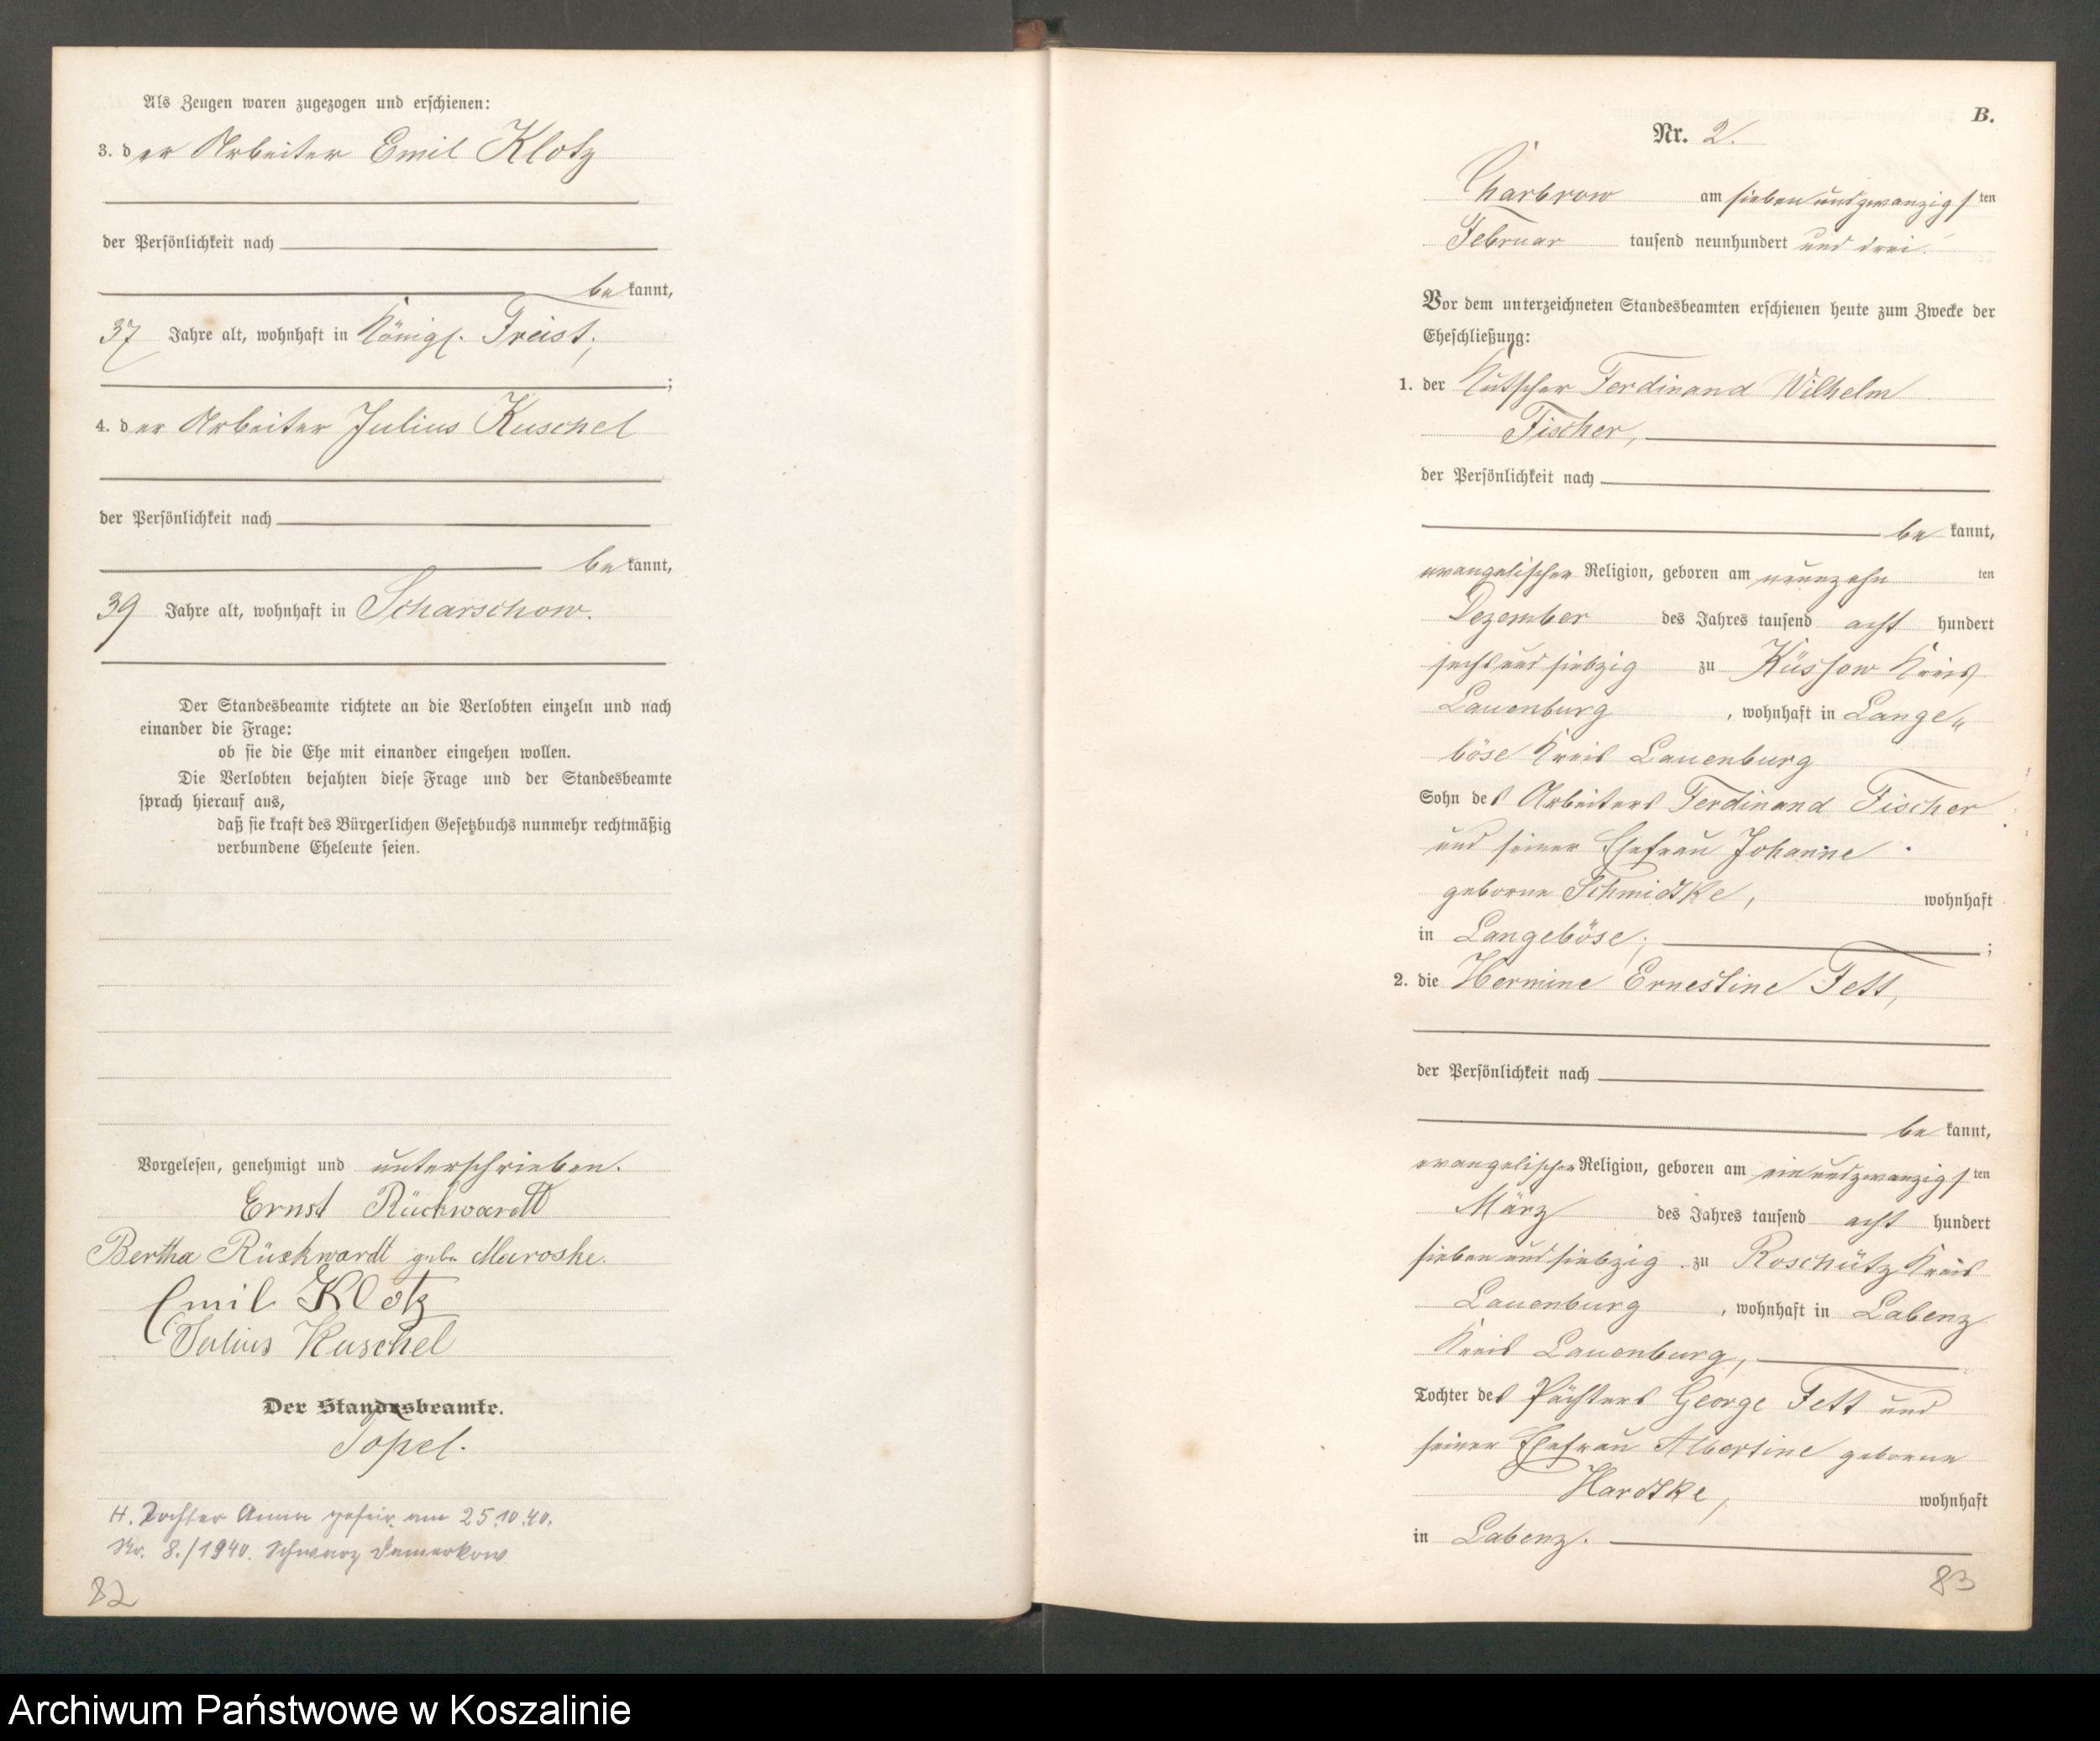 Als Zeugen waren zugezogen und erschienen:
3. der Arbeiter Emil Klotz
der Persönlichkeit nach
bekannt,
37 Jahre alt, wohnhaft in Königl. Freist,
;
4. der Arbeiter Julius Kuschel
der Persönlichkeit nach
bekannt,
39 Jahre alt, wohnhaft in Scharschow.
Der Standesbeamte richtete an die Verlobten einzeln und nach
einander die Frage:
ob sie die Ehe mit einander eingehen wollen.
Die Verlobten bejahten diese Frage und der Standesbeamte
sprach hierauf aus,
daß sie kraft des Bürgerlichen Gesetzbuchs nunmehr rechtmäßig
verbundene Eheleute seien.
Vorgelesen, genehmigt und unterschrieben.
Ernst Rückwardt
Bertha Rückwardt geb. Maroske.
Emil Klotz
Julius Kuschel
Der Standesbeamte.
Topel.
H. Tochter Anna geheir. am 25.10.40.
Nr. 8./1940. Schwarz Damerkow
82
B.
Nr. 2.
Charbrow am siebenundzwanzigsten
Februar tausend neunhundert und drei.
Vor dem unterzeichneten Standesbeamten erschienen heute zum Zwecke der
Eheschließung:
1. der Kutscher Ferdinand Wilhelm
Fischer,
der Persönlichkeit nach
bekannt,
evangelischer Religion, geboren am neunzehnten
Dezember des Jahres tausend acht hundert
sechsundsiebzig zu Küssow Kreis
Lauenburg, wohnhaft in Lange„
böse Kreis Lauenburg
Sohn des Arbeiters Ferdinand Fischer
und seiner Ehefrau Johanne
geborne Schmidtke, wohnhaft
in Langeböse; ;
2. die Hermine Ernestine Fett,
der Persönlichkeit nach
bekannt,
evangelischer Religion, geboren am einundzwanzigsten
März des Jahres tausend acht hundert
siebenundsiebzig zu Roschütz Kreis
Lauenburg, wohnhaft in Labenz
Kreis Lauenburg,
Tochter des Pächters George Fett und
seiner Ehefrau Albertine geborne
Hardtke, wohnhaft
in Labenz.
83
Archiwum Państwowe w Koszalinie